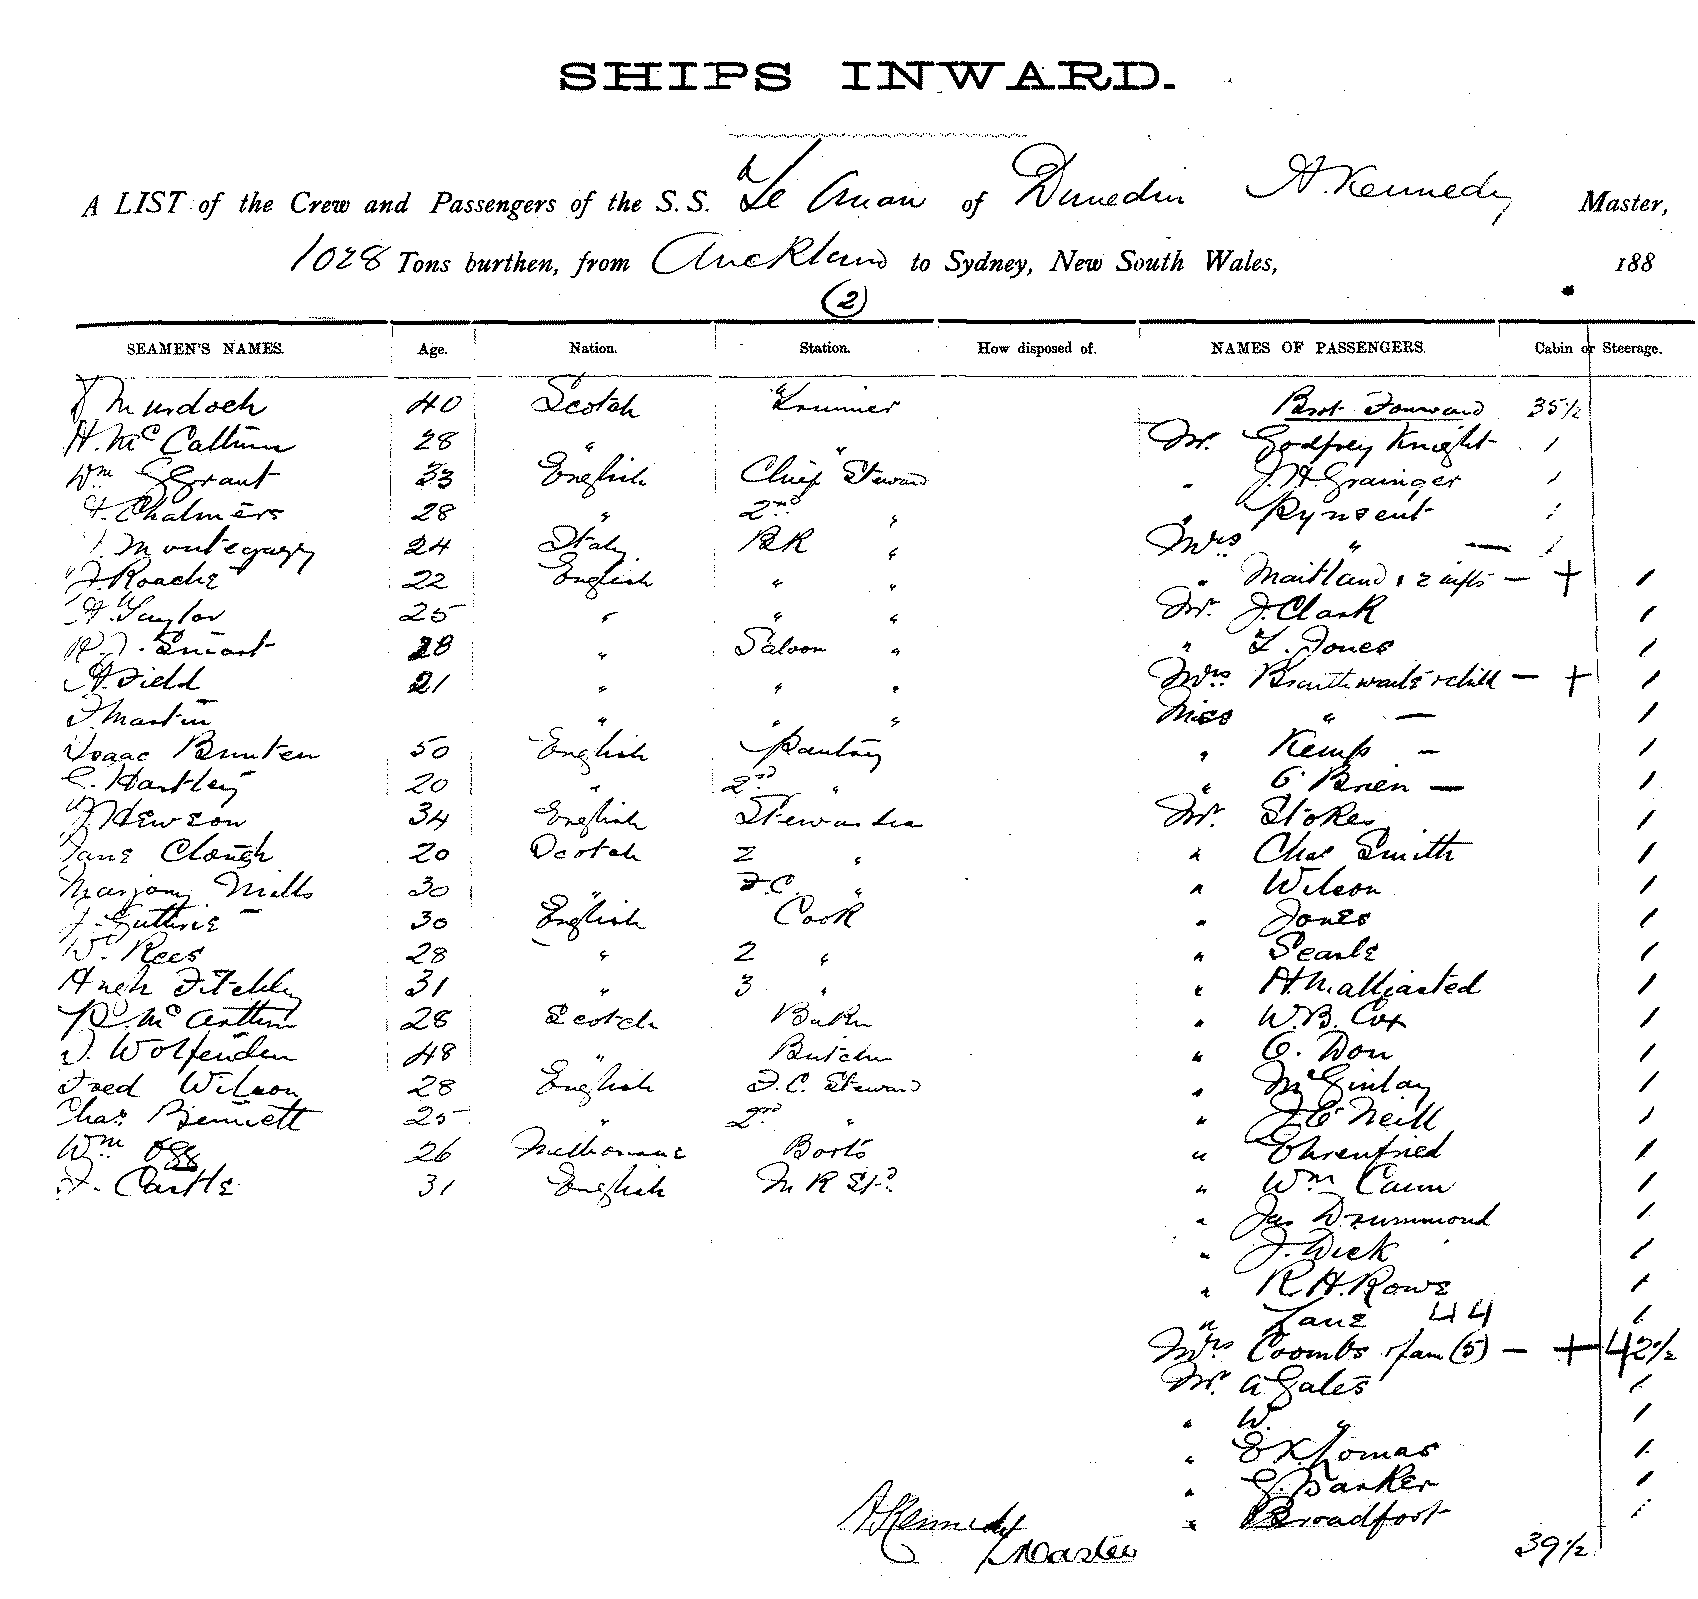 SHIPS INWARD.
A LIST of the Crew and Passengers of the S.S. Te Anau of Dunedin A. Kennedy Master,
1028 Tons burthen, from Auckland to Sydney, New South Wales, 188
(2)
SEAMEN'S NAMES. Age. Nation. Station. How disposed of. NAMES OF PASSENGERS. Cabin or Steerage.
Murdoch 40 Scotch Trimmer Brot Forward 35½
H. McCallum 28 " " Mr. Godfrey Knight 1
Wm Grant 33 English Chief Steward " J. H. Grainger 1
Chalmers 28 " 2nd " " Pynsent 1
24 Italy BR " Mrs " — 1
J. Roache 22 English " " " Maitland & 2 infts — + 1
A. Taylor 25 " " " Mr. J. Clark 1
Smart 28 " Saloon " " Jones 1
A. Field 21 " " " Mrs Braithwaite & child — + 1
Martin " " " Miss " — 1
Isaac Bunten 50 English Pantry " Kemp — 1
Hartley 20 " 2nd " " O'Brien — 1
J. Hewson 34 English Stewardess Mr. Stokes 1
Jane Clough 20 Scotch 2 " " Chas Smith 1
Marjory Mills 30 " F.C. " " Wilson 1
J. Guthrie 30 English Cook " Jones 1
W. Rees 28 " 2 " " Searle 1
Hugh 31 " 3 " " 1
R. McArthur 28 Scotch Baker " W. B. Cox 1
Wolfenden 48 " Butcher " Don 1
Fred Wilson 28 English F.C. Steward " McGinlay 1
Chas. Bennett 25 " 2nd " " J. O'Neill 1
Wm Ogg 26 Melbourne Boots " Ehrenfried 1
F. Castle 31 English M R Std. " Wm Cann 1
" Jas Drummond 1
" J. Dick 1
" R. H. Rowe 1
" Lane 44 1
Mrs Coombs & fam (5) — + 42½
Mr. A Gales 1
" W. " 1
" Lomas 1
" Barker 1
" Broadfoot 1
A. Kennedy
Master
39½